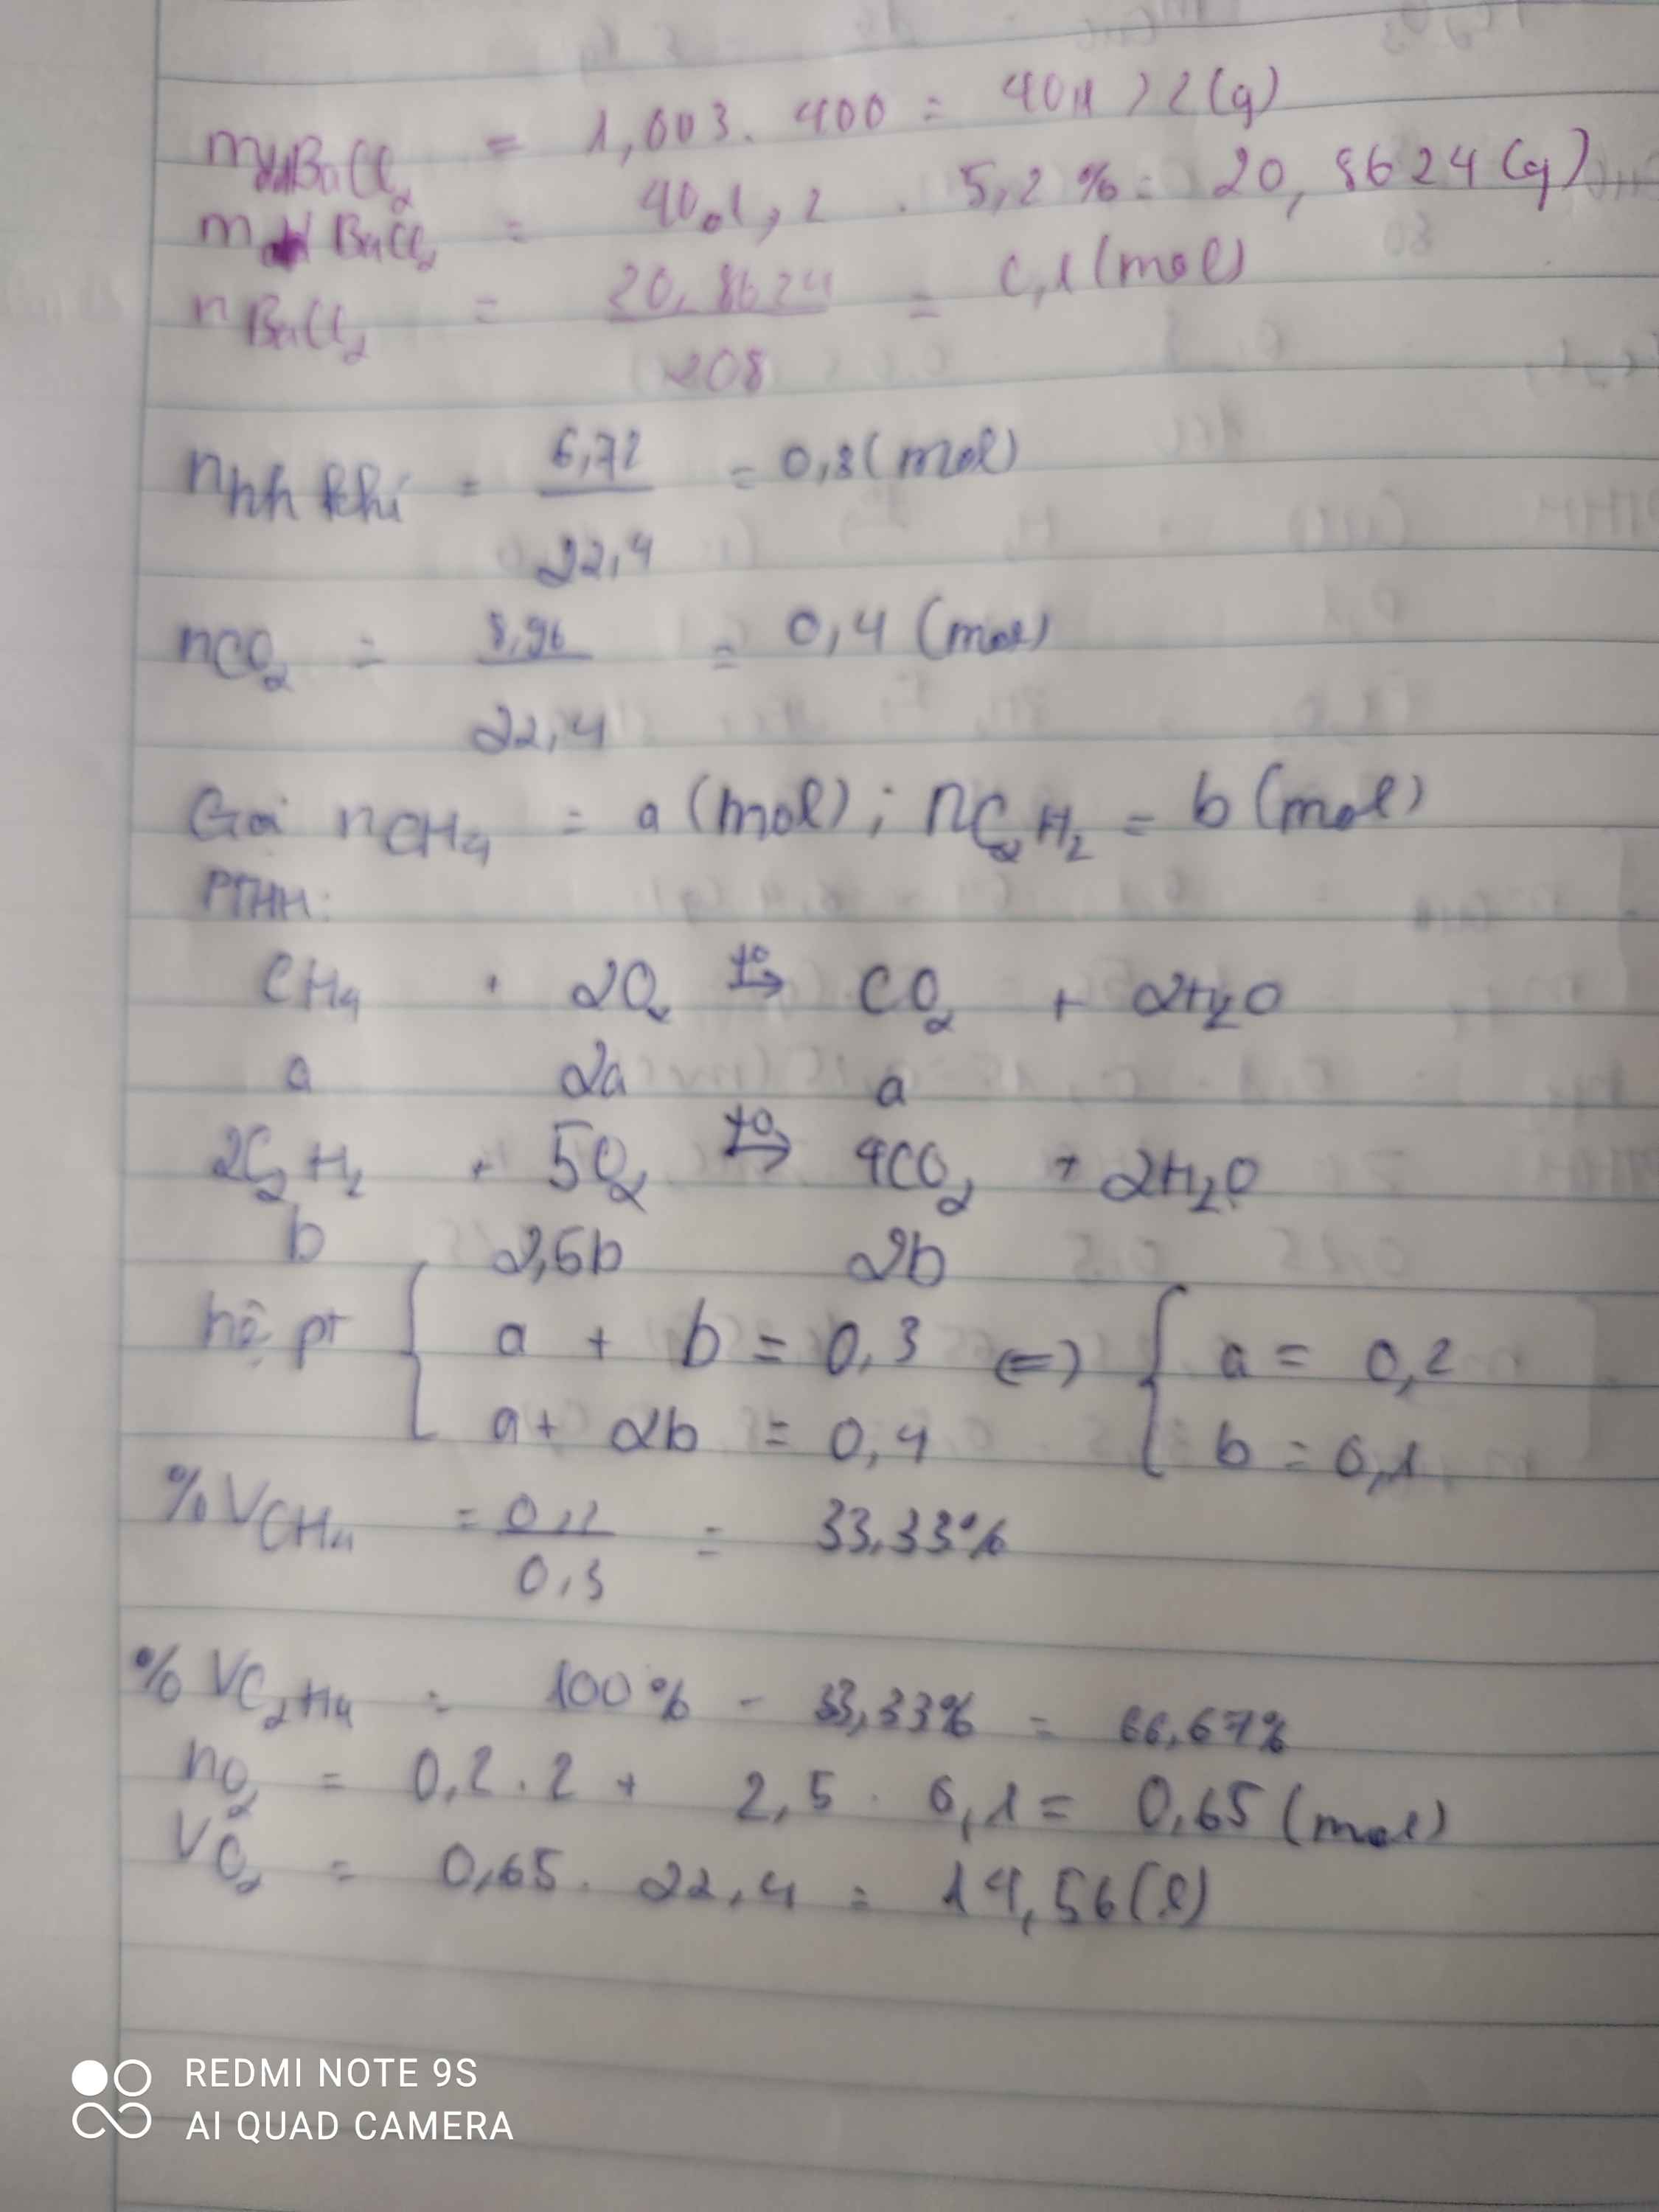 mddBaCl2 = 1,003. 400 = 401,2 (g)
m BaCl2 = 401,2 . 5,2% = 20,8624 (g)
nBaCl2 = 20,8624/208 = 0,1 (mol)
nhh khí = 6,72/22,4 = 0,3 (mol)
nCO2 = 8,96/22,4 = 0,4 (mol)
Gọi nCH4 = a (mol); nC2H2 = b (mol)
PTHH:
CH4 + 2O2 t°→ CO2 + 2H2O
a 2a a
2C2H2 + 5O2 t°→ 4CO2 + 2H2O
b 2,5b 2b
hệ pt { a + b = 0,3 <=> { a = 0,2
a + 2b = 0,4 b = 0,1
%VCH4 = 0,1/0,3 = 33,33%
%VC2H4 = 100% - 33,33% = 66,67%
nO2 = 0,2.2 + 2,5 . 0,1 = 0,65 (mol)
VO2 = 0,65. 22,4 = 14,56 (l)
REDMI NOTE 9S
AI QUAD CAMERA